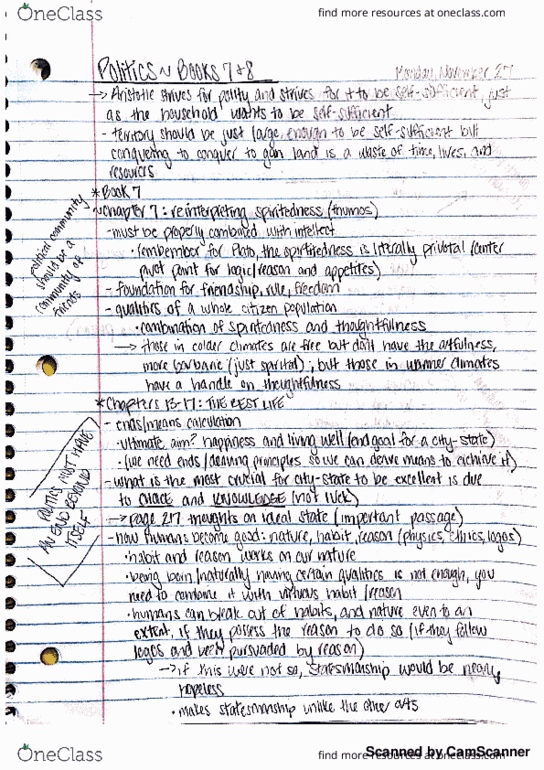 OneClass
find more resources at oneclass.com
Politics ~ Books 7+8
Monday, November 27
→ Aristotle strives for polity and strives for it to be self-sufficient, just
as the household wants to be self-sufficient
- territory should be just large enough to be self-sufficient but
conquering to conquer to gain land is a waste of time, lives, and
resources
* Book 7
~Chapter 7: reinterpreting spiritedness (thumos)
- must be properly combined with intellect
• remember for Plato, the spiritedness is literally pivotal (center
pivot point for logic/reason and appetites)
- foundation for friendship, rule, freedom
- qualities of a whole citizen population
• combination of spiritedness and thoughtfulness
→ those in colder climates are free but don't have the artfulness,
more barbaric (just spirited); but those in warmer climates
have a handle on thoughtfulness
political community
should be a
community of
friends
* Chapters 13-17: THE BEST LIFE
- ends/means calculation
• ultimate aim? happiness and living well (end goal for a city-state)
• (we need ends/cleaving principles so we can derive means to achieve it)
- what is the most crucial for city-state to be excellent is due
to CHOICE and KNOWLEDGE (not luck)
→ page 217 thoughts on ideal state (important passage)
- how humans become good: nature, habit, reason (physics, ethics, logos)
• habit and reason works on our nature
• being born/naturally having certain qualities is not enough, you
need to combine it with virtuous habit/reason
• humans can break out of habits, and nature even to an
extent, if they possess the reason to do so (if they follow
logos and were persuaded by reason)
→ if this were not so, statesmanship would be nearly
hopeless
• makes statesmanship unlike the other arts
POLITICS MUST HAVE
AN END BEYOND
ITSELF
OneClass
find more resources at oneclass.com
Scanned by CamScanner